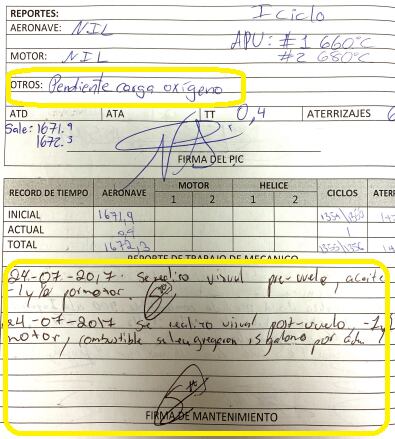 REPORTES: 1 ciclo
AERONAVE: NIL APU: #1 660°C
MOTOR: NIL #2 680°C
OTROS: Pendiente carga oxígeno
ATD ATA TT 0,4 ATERRIZAJES
Sale: 1671.9
1672.3
FIRMA DEL PIC
RECORD DE TIEMPO AERONAVE MOTOR HELICE CICLOS ATER
1 2 1 2
INICIAL 1671,9
ACTUAL 0,4 1
TOTAL 1672,3
REPORTE DE TRABAJO DE MECANICO
24-07-2017. Se realizo visual pre-vuelo, aceite
por motor.
24-07-2017 se realizo visual post-vuelo,
motor, combustible se le agregaron galones por
FIRMA DE MANTENIMIENTO